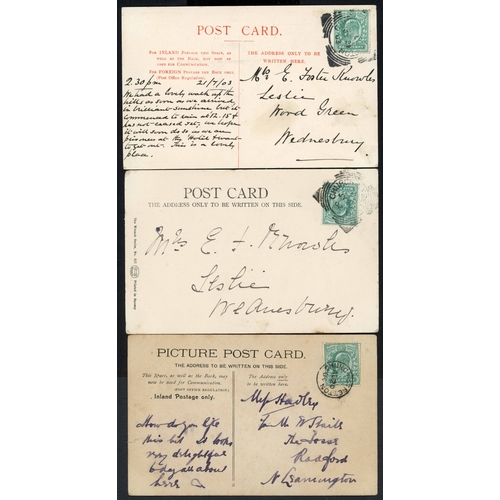 POST CARD.
FOR INLAND POSTAGE THIS SPACE, AS
WELL AS THE BACK, MAY NOW BE
USED FOR COMMUNICATION.
FOR FOREIGN POSTAGE THE BACK ONLY.
(Post Office Regulation).
THE ADDRESS ONLY TO BE
WRITTEN HERE.
2.30 pm 21/7/03
We had a lovely walk up the
hills as soon as we arrived,
in brilliant sunshine but it
commenced to rain at 12.15 &
has not ceased yet; we hope
it will soon do so as we are
prisoners at the Hotel & want
to get out. This is a lovely
place.
Mrs E. Foster Knowles
Leslie
Wood Green
Wednesbury
POST CARD
THE ADDRESS ONLY TO BE WRITTEN ON THIS SIDE.
Mrs E. F. Knowles
Leslie
Wednesbury.
PICTURE POST CARD.
THE ADDRESS TO BE WRITTEN ON THIS SIDE.
This Space, as well as the Back, may
now be used for Communication.
(POST OFFICE REGULATION)
Inland Postage only.
The Address only
to be written here.
How do you like
this bit It looks
very delightful
today all about
here
Miss Hadley
The
Radford
N Leamington